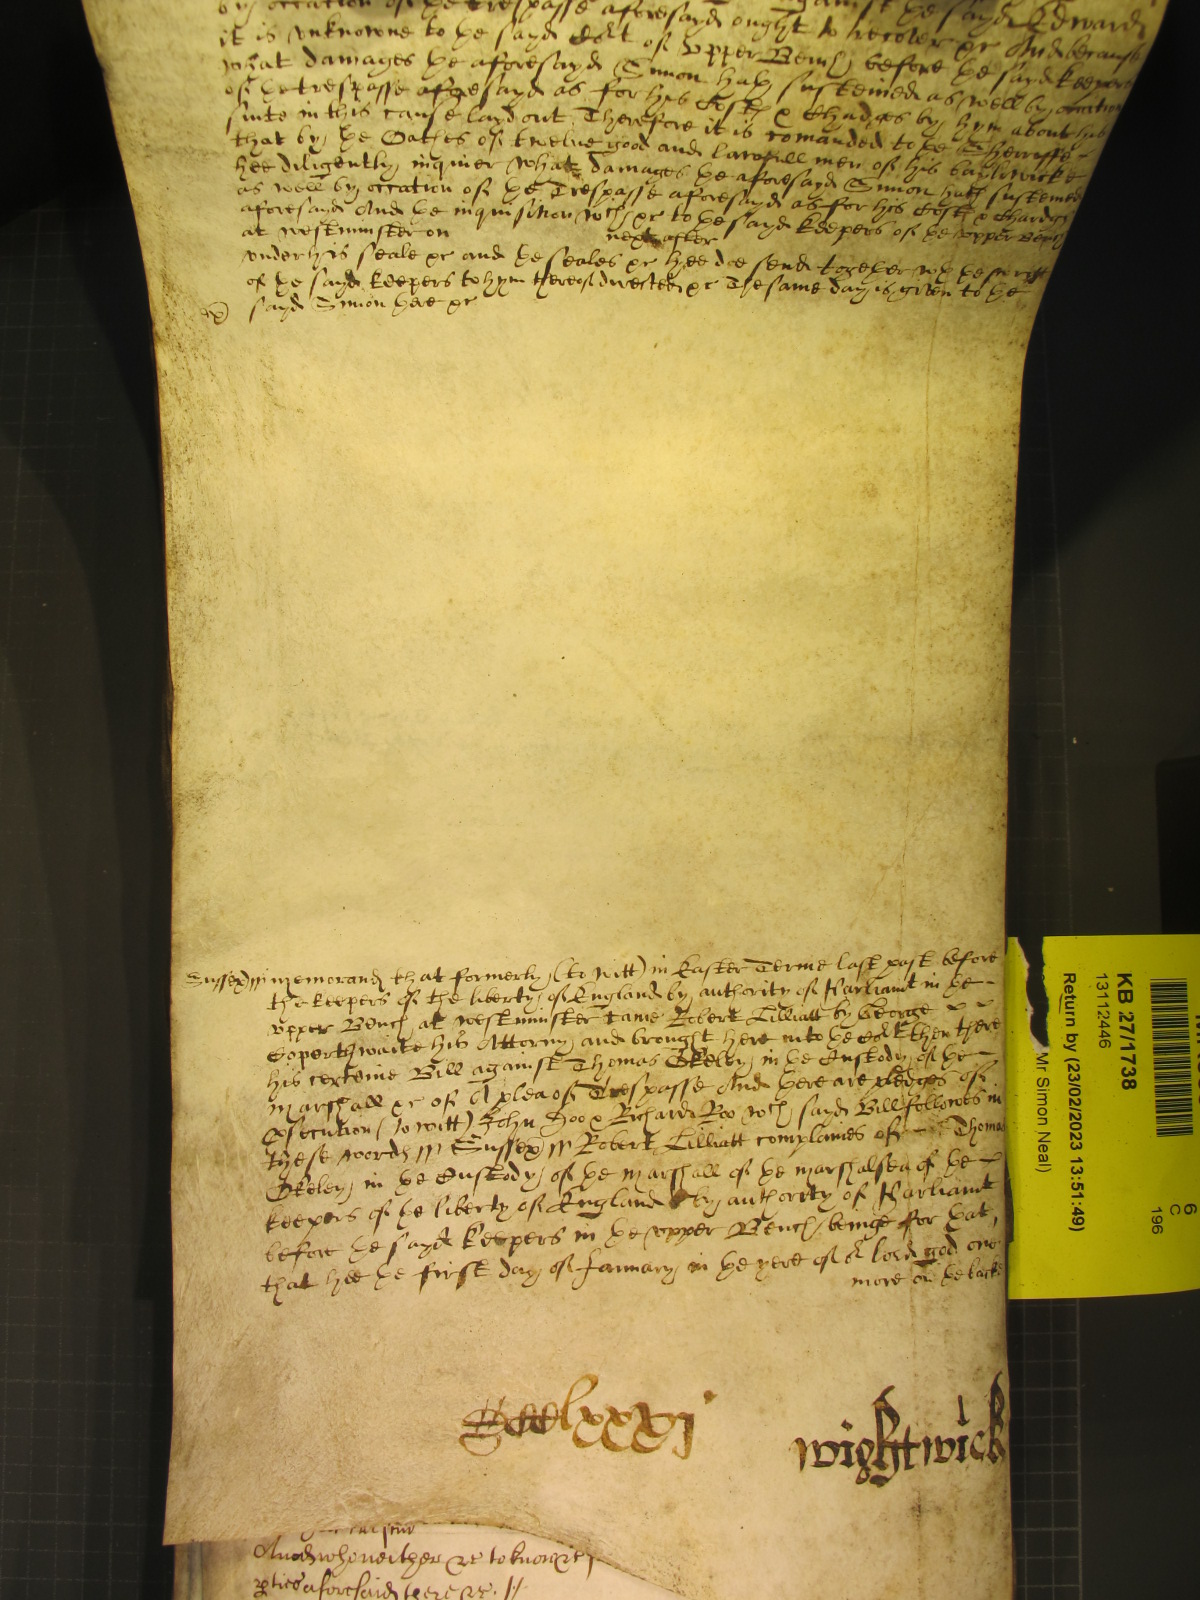 by occation of ye Trespasse aforesayd ought to recover &c And because
it is unknowne to ye sayd Cort of Upper Bench before ye sayd keepers
what damages ye aforesayd Simon hath susteined as well by occation
of ye trespasse aforesayd as for his Costs & Chardges by hym about his
suite in this cause layd out Therefore it is comanded to ye Sherriffe
that by ye Oathes of twelve good and lawfull men of his bayliwicke
hee diligently inquier what damages ye aforesayd Simon hath susteined
as well by occation of ye Trespasse aforesayd as for his Costs & Chardges
aforesayd And ye inquisition wch &c to ye sayd keepers of ye upper Bench
at westminster on next after
under his seale &c and ye seales &c hee doe send together wth ye writt
of ye sayd keepers to hym thereof directed &c The same day is given to ye
sayd Simon here &c
Sussex ss memorand that formerly (to witt) in Easter Terme last past before
the keepers of the liberty of England by authority of Parliamt in ye
upper Bench at westminster came Robert Lilliatt by George
Coperthwaite his Attorny and brought here into ye Cort then there
his certeine Bill against Thomas Okeley in ye Custody of ye
marshall &c of A plea of Trespasse And here are pledges of
Prosecution (to witt) John Doo & Richard Roo wch sayd Bill followes in
these words ss Sussex ss Robert Lilliatt complaines of Thomas
Okeley in ye Custody of ye marshall of ye marshalsea of ye
keepers of ye liberty of England by authority of Parliamt
before ye sayd keepers in ye upper Bench beinge for yat,
that hee ye first day of January in ye yere of or lord god one
more on ye backe
Ccclxxxj
wightwick
And who neither &c to know &c
pties aforesaid there &c
KB 27/1738
13112446
Return by (23/02/2023 13:51:49)
Mr Simon Neal)
6
C
196